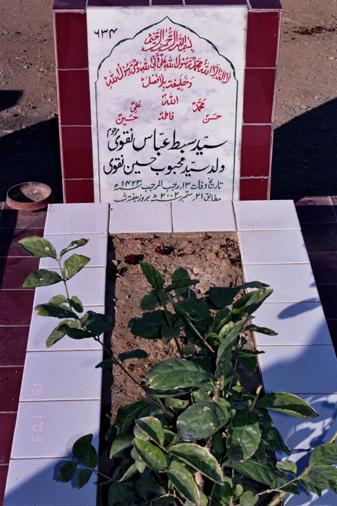 ۶۳۴
بسم اللہ الرحمن الرحیم
لا الہ الا اللہ محمد رسول اللہ علی ولی اللہ وصی رسول اللہ
وخلیفتہ بلا فصل
اللہ
محمد علی
فاطمہ
حسن حسین
سید سبط عباس نقوی مرحوم
ولد سید محبوب حسین نقوی
تاریخ وفات ۱۳ رجب المرجب ۱۴۲۳ھ
مطابق ۲۱ ستمبر ۲۰۰۲ء بروز ہفتہ